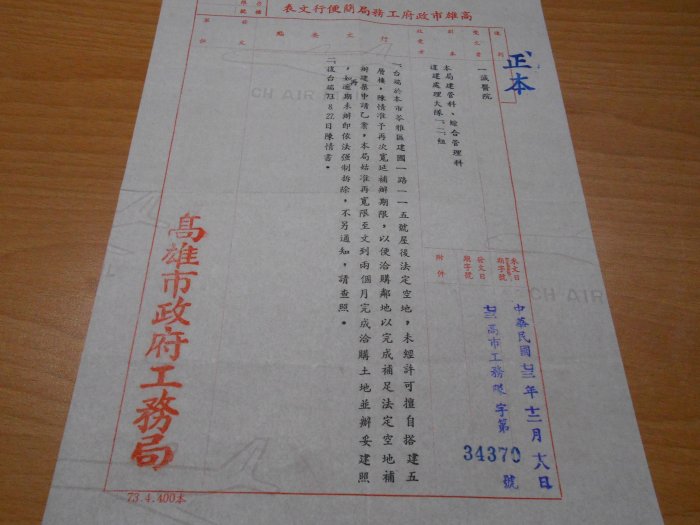 高雄市政府工務局簡便行文表
正本
受文者
一誠醫院
副本
收受者
本局建管科、綜合管理科
違建處理大隊一、二組
行文
位
文
來文日
期字號
發文日
期字號
附件
中華民國七三年十二月十八日
七三高市工務暌字第
34370
號
一、台端於本市苓雅區建國一路一一五號屋後法定空地，未經許可擅自搭建五
層樓，陳情准予再次寬延補辦期限，以便洽購鄰地以完成補足法定空地補
辦建築申請乙案，本局姑准再寬限至文到兩個月完成洽購土地並辦妥建照
，如再逾期未辦即依法強制拆除，不另通知，請查照。
二、復台端73.8.22日陳情書。
高雄市政府工務局
73.4.400本
CH AIR
CH AIR